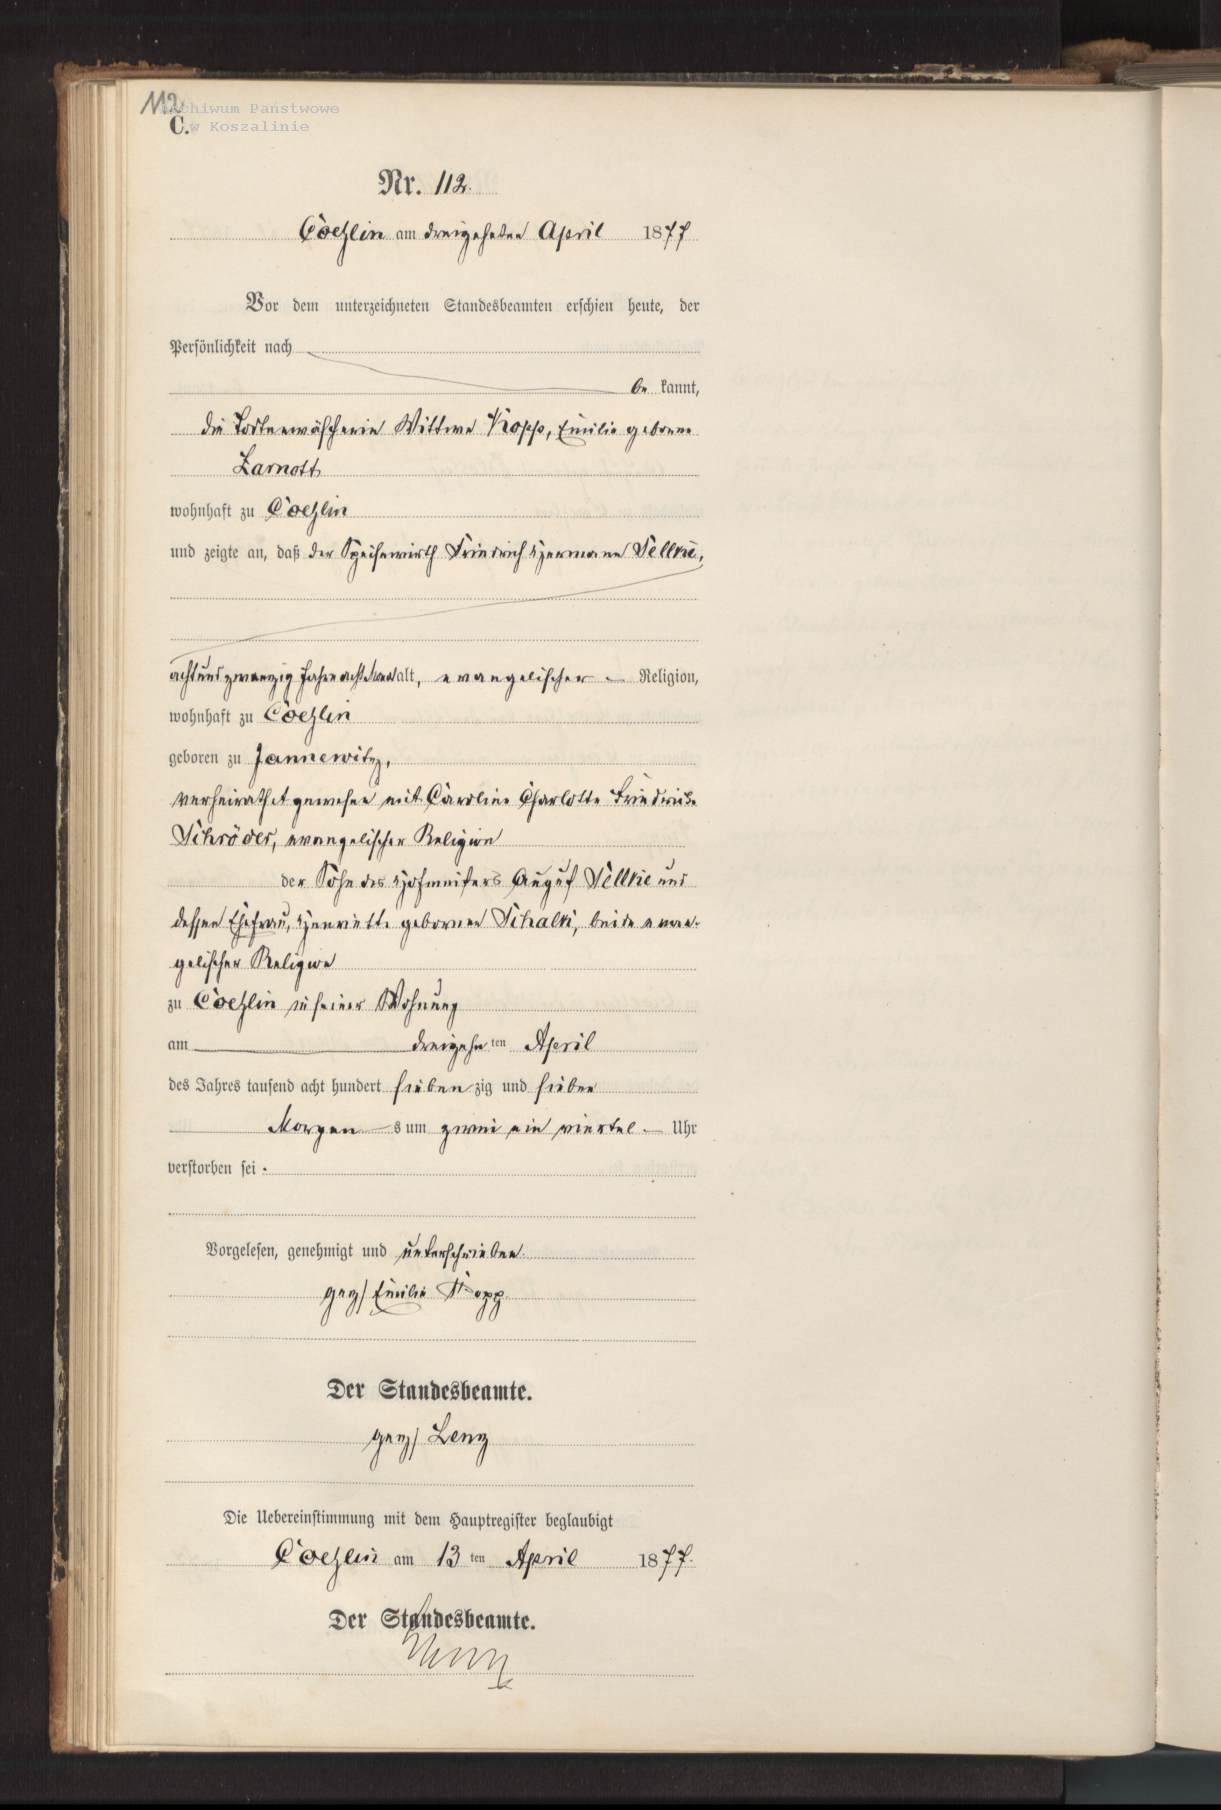 112
Archiwum Państwowe
w Koszalinie
C.
Nr. 112.
Coeslin am dreizehnten April 1877
Vor dem unterzeichneten Standesbeamten erschien heute, der
Persönlichkeit nach
be kannt,
die Todtenwäscherin Wittwe Kopp, Emilie geborene
Zarnott
wohnhaft zu Coeslin
und zeigte an, daß der Speisewirth Friedrich Hermann Sellke,
achtundzwanzig Jahre alt, evangelischer Religion,
wohnhaft zu Coeslin
geboren zu Jannewitz,
verheirathet gewesen mit Caroline Charlotte Friedricke
Schröder, evangelischer Religion
der Sohn des Hofmeisters August Sellke und
dessen Ehefrau, Henriette geborenen Schalk, beide evan-
gelischer Religion
zu Coeslin in seiner Wohnung
am dreizehn ten April
des Jahres tausend acht hundert sieben zig und sieben
Morgen s um zwei ein viertel Uhr
verstorben sei.
Vorgelesen, genehmigt und unterschrieben.
gez/ Emilie Kopp
Der Standesbeamte.
gez/ Lenz
Die Uebereinstimmung mit dem Hauptregister beglaubigt
Coeslin am 13 ten April 1877.
Der Standesbeamte.
Lenz